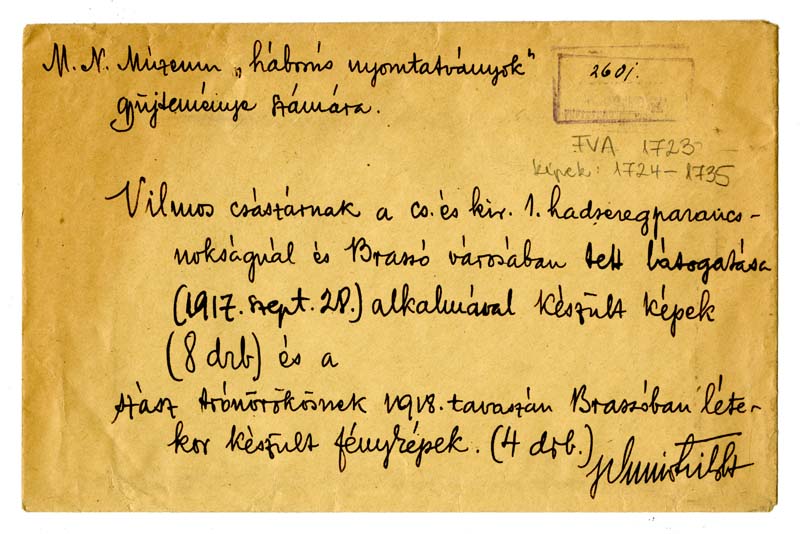 M. N. Múzeum „háborús nyomtatványok"
gyűjteménye számára.
2601.
FVA 1723
képek: 1724-1735
Vilmos császárnak a cs. és kir. 1. hadseregparancs-
nokságnál és Brassó városában tett látogatása
(1917. szept. 28.) alkalmával készült képek
(8 drb) és a
szász trónörökösnek 1918. tavaszán Brassóban léte-
kor készült fényképek. (4 drb.)